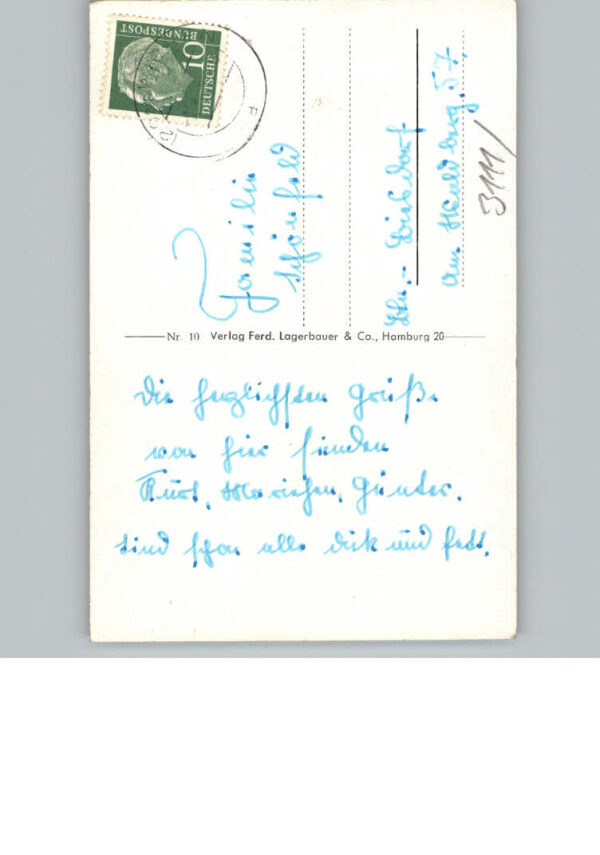 Die herzlichsten Grüße
von hier senden
Kurt, Mariechen, Günter.
sind schon alle dick und fett.
Nr. 10 Verlag Ferd. Lagerbauer & Co., Hamburg 20
Familie
Schönfeld
Bln.-
Am 57.
3111/
DEUTSCHE
BUNDESPOST
10